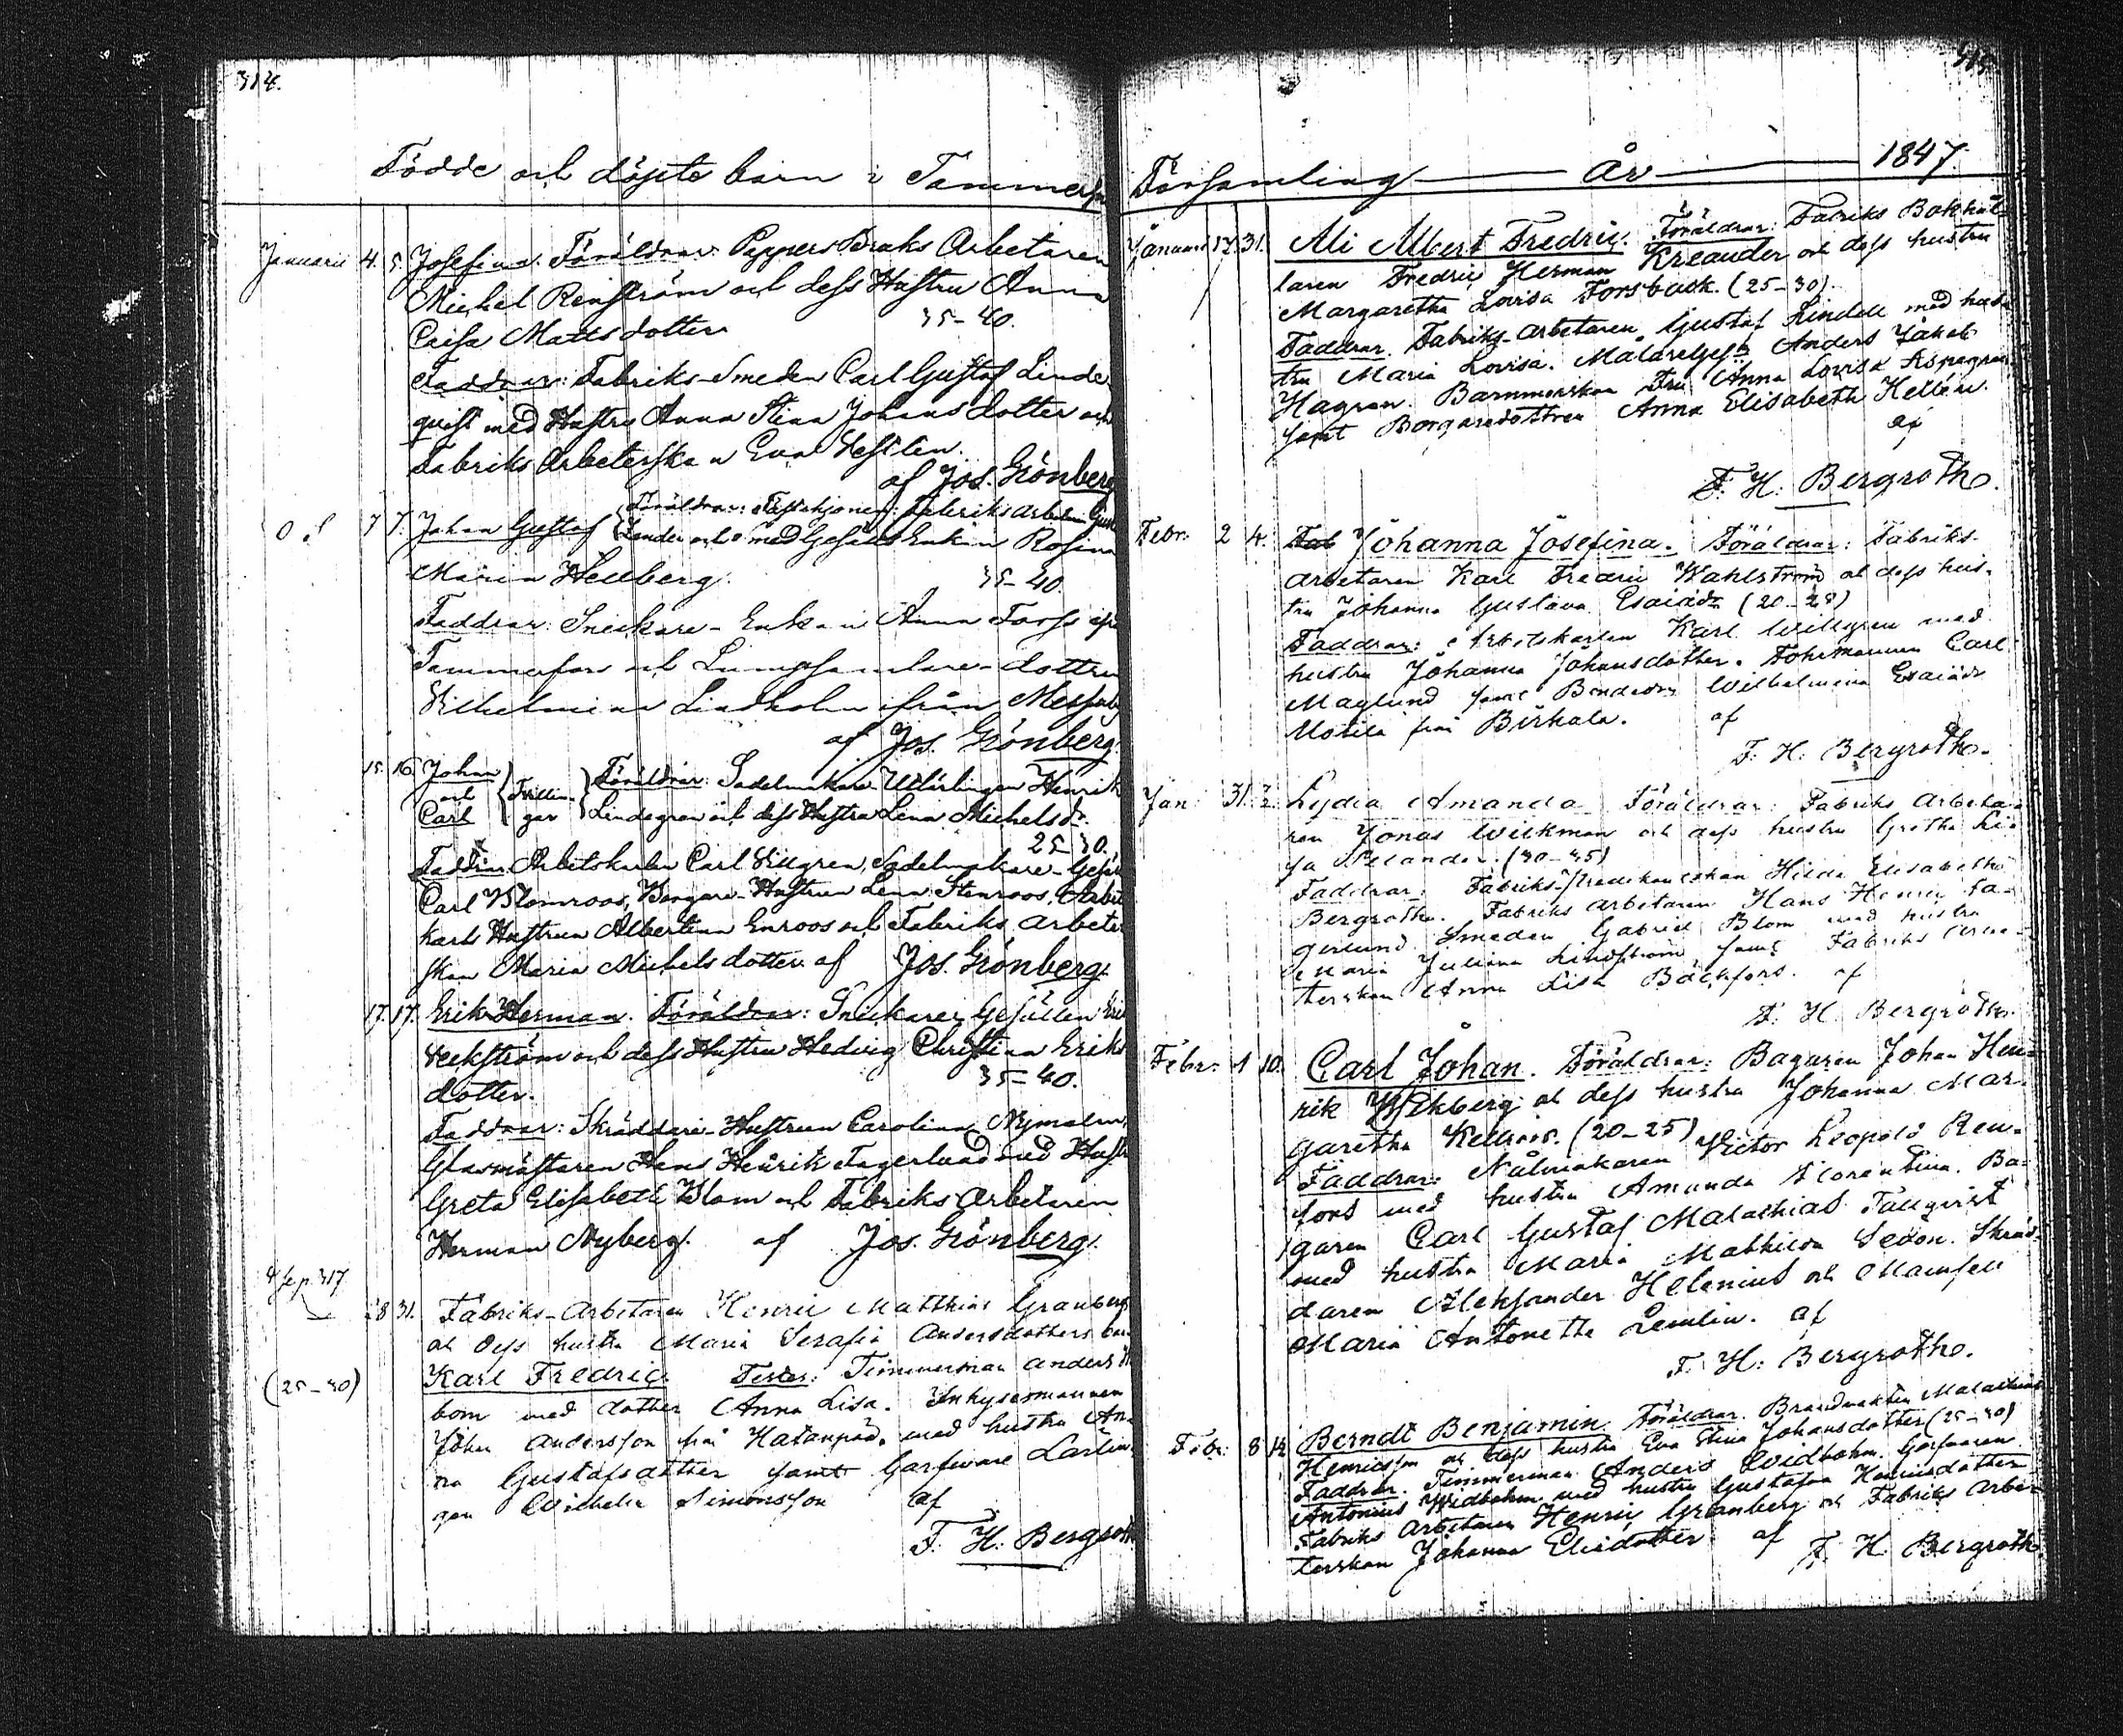 314.
Födde och döpte barn i Tammerfors
Januarii 4. 5. Josefina. Föräldrar: Pappers Bruks Arbetaren
Michel Renström och dess Hustru Anna
Caisa Mattsdotter 35-40.
Faddrar: Fabriks-Smeden Carl Gustaf Linde
quist med Hustru Anna Stina Johansdotter och
Fabriks Arbeterskan Eva Vestlén.
af Jos. Grönberg
7 7. Johan Gustaf Föräldrar: Fabriks arbetaren
Lender och med Enkan Rosina
Maria Hellberg. 35-40.
Faddrar: Snickare-Enkan Anna Forss
Tammerfors och Lumpsamlare-dottren
Vilhelmina Lindholm från Messuby
af Jos. Grönberg.
15. 16. Johan och Carl Tvillingar Föräldrar: Sadelmakare Utlärlingen Henrik
Lindegren och dess Hustru Lena Michelsdr.
25-30.
Faddrar: Arbetskarlen Carl Villgren, Sadelmakare-Gesäll
Carl Blomroos, Hustrun Lena Stenroos, Arbets
karls Hustrun Albertina Enroos och Fabriks arbeter
skan Maria Michelsdotter. af Jos. Grönberg.
17. 17. Erik Herman. Föräldrar: Snickare Gesällen Erik
Veckström och dess Hustru Hedvig Christina Eriks
dotter. 35-40.
Faddrar: Skräddare-Hustrun Carolina Nymalm,
Glasmästaren Hans Henrik Fagerlund med Hustr
Greta Elisabeth Blom och Fabriks Arbetaren
Herman Nyberg. af Jos. Grönberg.
317
28 31. Fabriks-Arbetaren Henric Matthias Granberg
och dess hustru Maria Serafia Andersdotters barn
(25-30) Karl Fredric. Testes: Timmerman Anders
bom med dotter Anna Lisa. Inhysesmannen
Johan Andersson från Hatanpää, med hustru An
na Gustafsdotter samt Garfvare Lärlin
gen Wilhelm Simonsson af
F. H. Bergroth
315
Församling År 1847.
Januarii 17. 31. Ali Albert Fredric. Föräldrar: Fabriks Bokhål
laren Fredric Herman Kreander och dess hustru
Margaretha Lovisa Forsback. (25-30).
Faddrar. Fabriks-Arbetaren Gustaf Lindell med hus
tru Maria Lovisa. Målaregesn Anders Jakob
Hagren. Barnmorskan Fru Anna Lovisa Aspegren
samt Borgaredottren Anna Elisabeth Hellén.
af
F. H. Bergroth.
Febr. 2 4. Johanna Josefina. Föräldrar: Fabriks-
arbetaren Karl Fredric Wahlström och dess hus-
tru Johanna Gustava Esaiädr (20-25)
Faddrar: Arbetskarlen Karl Willgren med
hustru Johanna Johansdotter. Fohrmannen Carl
Maglund samt Bondedr Wilhelmina Esaiädr
från Birkala. af
F. H. Bergroth.
Jan: 31. Lydia Amanda Föräldrar: Fabriks Arbeta-
ren Jonas Wilkman och dess hustru Gretha Li-
sa Selander. (30-35)
Faddrar: Fabriks- Hilda Elisabeth
Bergroth. Fabriks arbetaren Hans Henric Fa-
gerlund. Smeden Gabriel Blom med hustru
Maria Juliana Lindström samt Fabriks Arbe-
terskan Anna Lisa Backfors. af
F. H. Bergroth.
Febr: 1 10. Carl Johan. Föräldrar: Bagaren Johan Hen-
rik Wikberg och dess hustru Johanna Mar-
garetha Kellroos. (20-25)
Faddrar: Nålmakaren Victor Leopold Ren-
fors med hustru Amanda Florentina. Ba-
garen Carl Gustaf Malachias Tallqvist
med hustru Maria Mathilda Sedon. Skräd-
daren Aleksander Helenius och Mamsell
Maria Antonetta Lemlin. af
F. H. Bergroth.
Febr: 8 14. Berndt Benjamin. Föräldrar. Brandvakten Malachias
Henricsson och dess hustru Eva Stina Johansdotter (25-30)
Faddrar. Timmerman Anders Widbohm. Garfvaren
Antonius Widbohm med hustru Gustafva Henricsdotter
Fabriks Arbetaren Henric Granberg och Fabriks Arbe-
terskan Johanna Elisdotter af F. H. Bergroth.